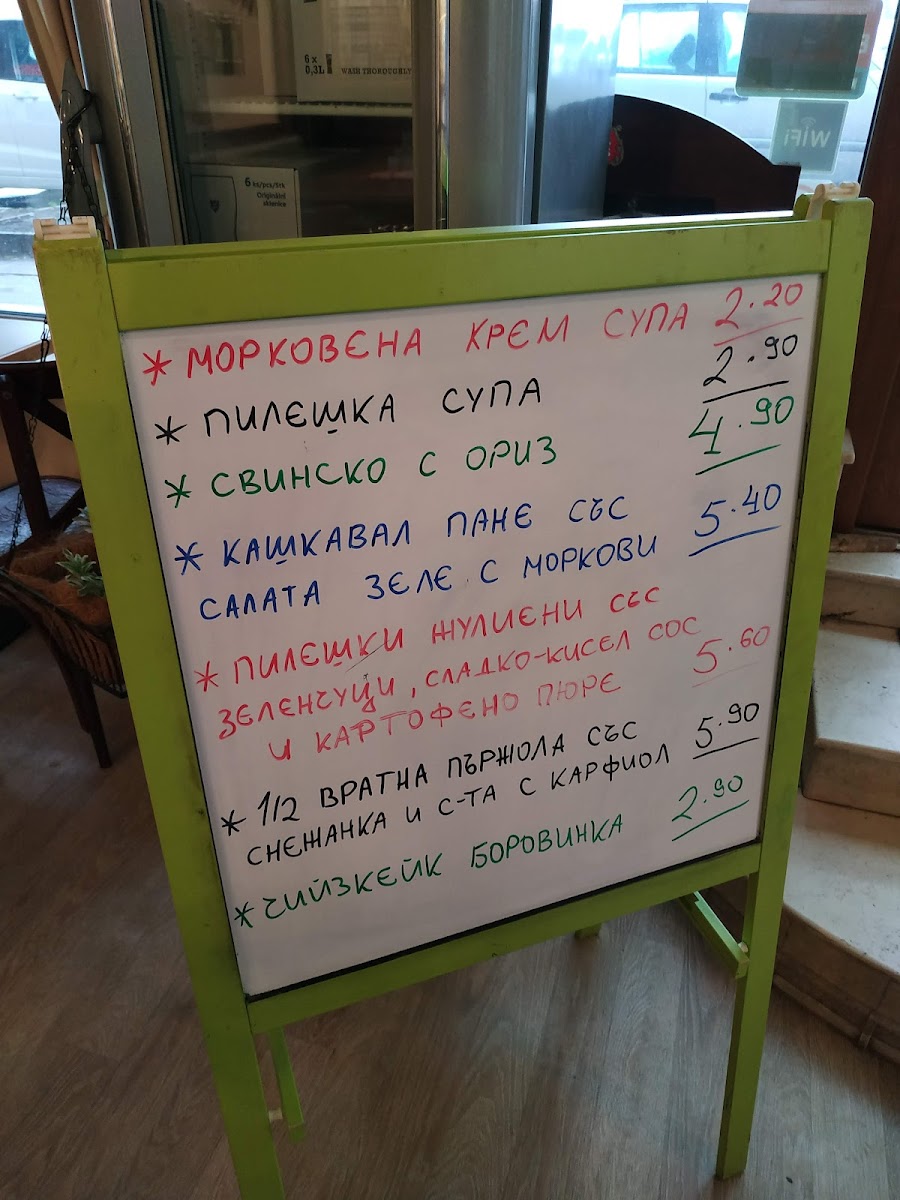 6 x
0,3L
WASH THOROUGHLY
6 ks/pcs/Stk
Originální
sklenice
WiFi
* МОРКОВЕНА КРЕМ СУПА 2.20
* ПИЛЕШКА СУПА 2.90
* СВИНСКО С ОРИЗ 4.90
* КАШКАВАЛ ПАНЕ СЪС
САЛАТА ЗЕЛЕ С МОРКОВИ 5.40
* ПИЛЕШКИ ЖУЛИЕНИ СЪС
ЗЕЛЕНЧУЦИ, СЛАДКО-КИСЕЛ СОС
И КАРТОФЕНО ПЮРЕ 5.60
* 1/2 ВРАТНА ПЪРЖОЛА СЪС
СНЕЖАНКА И С-ТА С КАРФИОЛ 5.90
* ЧИЙЗКЕЙК БОРОВИНКА 2.90